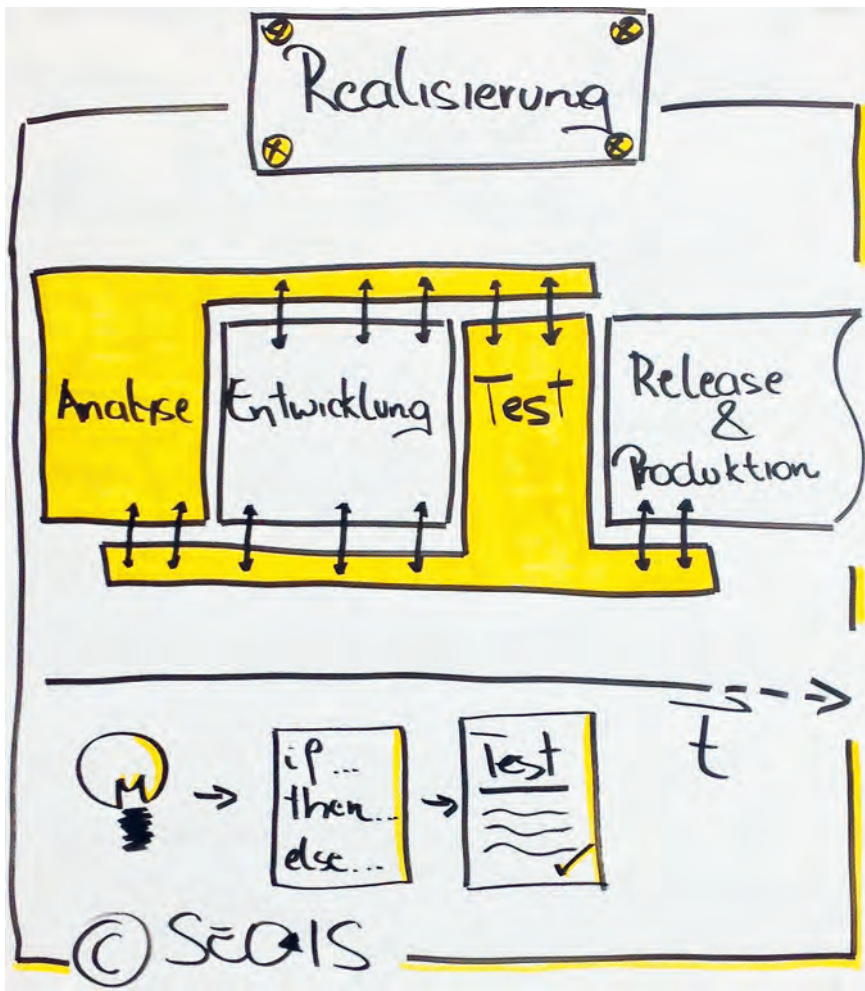 Realisierung
Analyse
Entwicklung
Test
Release
&
Produktion
t
if...
then...
else...
Test
© SEQIS